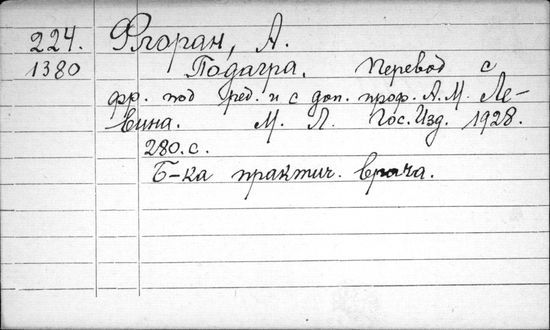 224. Флоран, А.
1380 Подагра. Перевод с
фр. под ред. и с доп. проф. А. М. Ле-
вина. М. Л. Гос. Изд. 1928.
280. с.
Б-ка практич. врача.